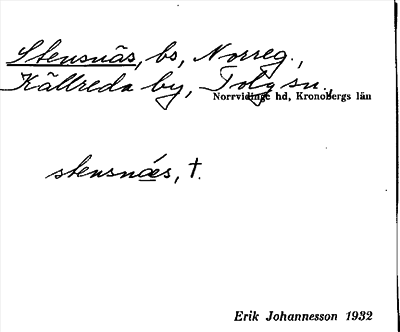 Stensnäs, bs, Norreg.,
Källreda by, Tolg sn.,
Norrvidinge hd, Kronobergs län
stensnæs, t.
Erik Johannesson 1932